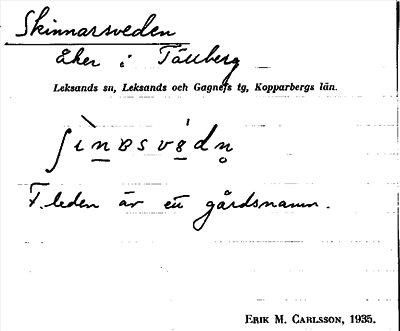 Skinnarsveden
Åker i Tällberg
Leksands sn, Leksands och Gagnefs tg, Kopparbergs län.
F. leden är ett gårdsnamn.
ERIK M. CARLSSON, 1935.